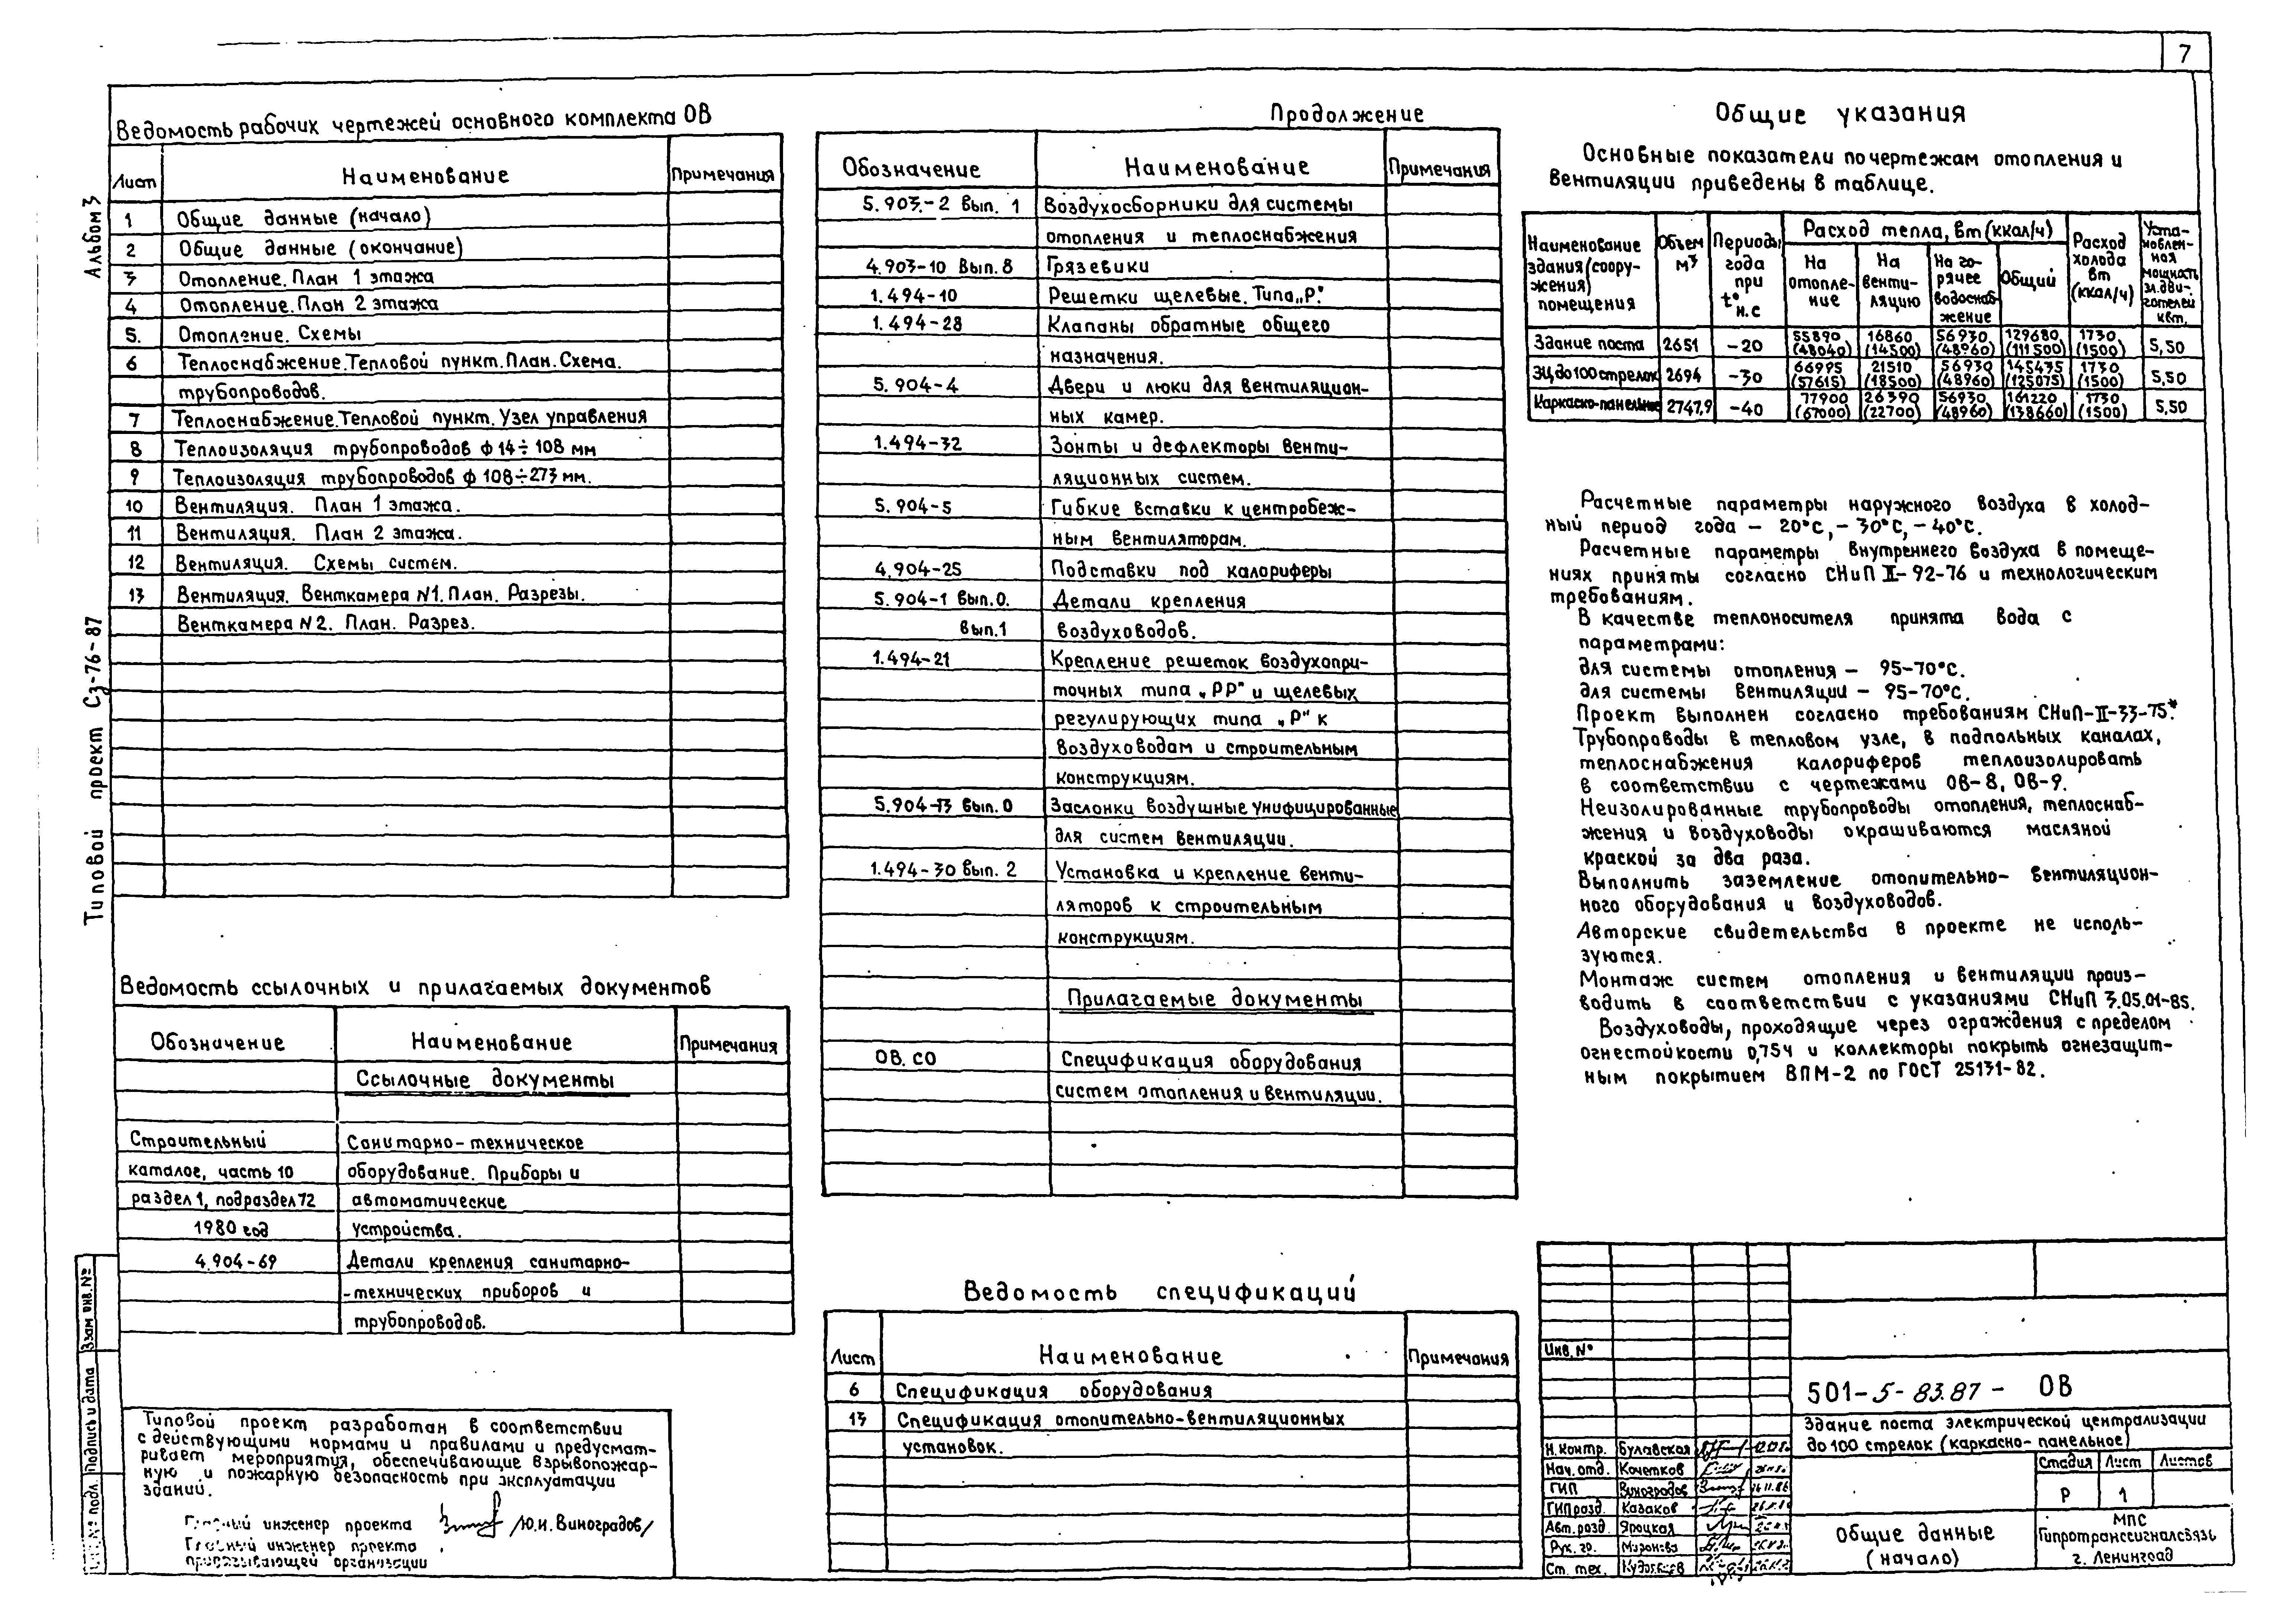 7
Альбом 3
Типовой проект Сз-76-87
Ведомость рабочих чертежей основного комплекта ОВ
Лист Наименование Примечания
1 Общие данные (начало)
2 Общие данные (окончание)
3 Отопление. План 1 этажа
4 Отопление. План 2 этажа
5. Отопление. Схемы
6 Теплоснабжение. Тепловой пункт. План. Схема.
трубопроводов.
7 Теплоснабжение. Тепловой пункт. Узел управления
8 Теплоизоляция трубопроводов ф 14÷108 мм
9 Теплоизоляция трубопроводов ф 108÷273 мм.
10 Вентиляция. План 1 этажа.
11 Вентиляция. План 2 этажа.
12 Вентиляция. Схемы систем.
13 Вентиляция. Венткамера N1. План. Разрезы.
Венткамера N2. План. Разрез.
Ведомость ссылочных и прилагаемых документов
Обозначение Наименование Примечания
Ссылочные документы
Строительный Санитарно-техническое
каталог, часть 10 оборудование. Приборы и
раздел 1, подраздел 72 автоматические
1980 год устройства.
4.904-69 Детали крепления санитарно-
-технических приборов и
трубопроводов.
Типовой проект разработан в соответствии
с действующими нормами и правилами и предусмат-
ривает мероприятия, обеспечивающие взрывопожар-
ную и пожарную безопасность при эксплуатации
зданий.
Главный инженер проекта /Ю.И. Виноградов/
Главный инженер проекта
привязывающей организации
Взам инв. №
Подпись и дата
№ подл.
Продолжение
Обозначение Наименование Примечания
5.903.-2 вып. 1 Воздухосборники для системы
отопления и теплоснабжения
4.903-10 Вып. 8 Грязевики
1.494-10 Решетки щелевые. Типа „Р."
1.494-28 Клапаны обратные общего
назначения.
5.904-4 Двери и люки для вентиляцион-
ных камер.
1.494-32 Зонты и дефлекторы венти-
ляционных систем.
5.904-5 Гибкие вставки к центробеж-
ным вентиляторам.
4.904-25 Подставки под калориферы
5.904-1 вып.0. Детали крепления
вып.1 воздуховодов.
1.494-21 Крепление решеток воздухопри-
точных типа „РР" и щелевых
регулирующих типа „Р" к
воздуховодам и строительным
конструкциям.
5.904-13 вып. 0 Заслонки воздушные унифицированные
для систем вентиляции.
1.494-30 вып. 2 Установка и крепление венти-
ляторов к строительным
конструкциям.
Прилагаемые документы
ОВ. СО Спецификация оборудования
систем отопления и вентиляции.
Ведомость спецификаций
Лист Наименование Примечания
6 Спецификация оборудования
13 Спецификация отопительно-вентиляционных
установок.
Общие указания
Основные показатели по чертежам отопления и
вентиляции приведены в таблице.
Наименование здания (соору-жения) помещения Объем м³ Периоды года при t° н.с Расход тепла, вт (ккал/ч) Расход холода вт (ккал/ч) Уста-новлен-ная мощность эл.дви-гателей квт.
На отопле-ние На венти-ляцию На го-рячее водоснаб-жение Общий
Здание поста 2651 -20 55890 (48040) 16860 (14500) 56930 (48960) 129680 (111500) 1730 (1500) 5,50
ЭЦ до 100 стрелок 2694 -30 66995 (57615) 21510 (18500) 56930 (48960) 145435 (125075) 1730 (1500) 5,50
Каркасно-панельное 2747,9 -40 77900 (67000) 26390 (22700) 56930 (48960) 161220 (138660) 1730 (1500) 5,50
Расчетные параметры наружного воздуха в холод-
ный период года - 20°с, - 30°с, - 40°с.
Расчетные параметры внутреннего воздуха в помеще-
ниях приняты согласно СНиП II-92-76 и технологическим
требованиям.
В качестве теплоносителя принята вода с
параметрами:
для системы отопления - 95-70°с.
для системы вентиляции - 95-70°с.
Проект выполнен согласно требованиям СНиП-II-33-75*.
Трубопроводы в тепловом узле, в подпольных каналах,
теплоснабжения калориферов теплоизолировать
в соответствии с чертежами ОВ-8, ОВ-9.
Неизолированные трубопроводы отопления, теплоснаб-
жения и воздуховоды окрашиваются масляной
краской за два раза.
Выполнить заземление отопительно-вентиляцион-
ного оборудования и воздуховодов.
Авторские свидетельства в проекте не исполь-
зуются.
Монтаж систем отопления и вентиляции произ-
водить в соответствии с указаниями СНиП 3.05.01-85.
Воздуховоды, проходящие через ограждения с пределом
огнестойкости 0,75ч и коллекторы покрыть огнезащит-
ным покрытием ВПМ-2 по ГОСТ 25131-82.
Инв. №
501-5-83.87 - ОВ
Здание поста электрической централизации
до 100 стрелок (каркасно-панельное)
Н. контр. Булавская
Нач. отд. Кочетков
ГИП Виноградов
ГИП разд. Казаков
Авт. разд. Яроцкая
Рук. гр. Миронова
Ст. тех.
Стадия Лист Листов
Р 1
Общие данные
(начало)
МПС
Гипротранссигналсвязь
г. Ленинград